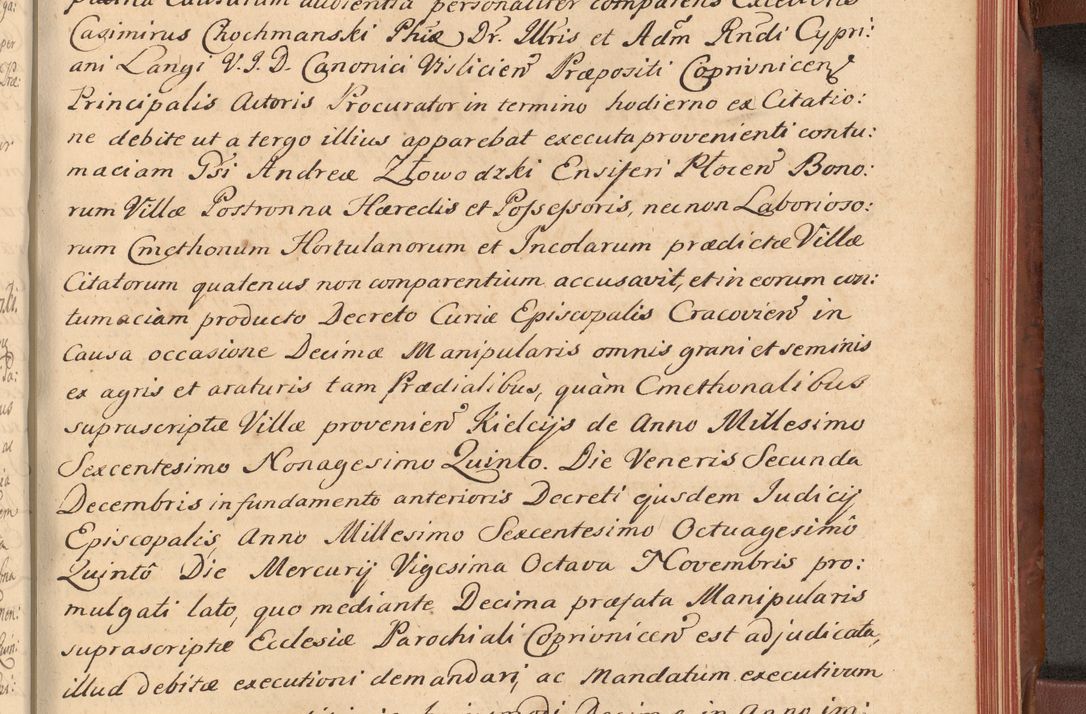 Causarum audientia personaliter comparens Excellens
Casimirus Crochmanski Phiæ Dr. Illris et Adm Rndi Cypri:
ani Langi V.J.D. Canonici Vislicien Præpositi Coprivnicen
Principalis Actoris Procurator in termino hodierno ex Citatio:
ne debite ut a tergo illius apparebat executa provenienti contu:
maciam Gsi Andreæ Złowodzki Ensiferi Płocen Bono:
rum Villæ Postronna Hæredis et Possessoris, necnon Laborioso:
rum Cmethonum Hortulanorum et Incolarum prædictæ Villæ
Citatorum quatenus non comparentium accusavit, et in eorum con:
tumaciam producto Decreto Curiæ Episcopalis Cracovien in
Causa occasione Decimæ Manipularis omnis grani et seminis
ex agris et araturis tam Prædialibus, quàm Cmethonalibus
suprascriptæ Villæ provenien Kielcijs de Anno Millesimo
Sexcentesimo Nonagesimo Quinto. Die Veneris Secunda
Decembris in fundamento anterioris Decreti ejusdem Judicij
Episcopalis, Anno Millesimo Sexcentesimo Octuagesimô
Quintô Die Mercurij Vigesima Octava Novembris pro:
mulgati lato, quo mediante, Decima præfata Manipularis
suprascriptæ Ecclesiæ Parochiali Coprivnicen est adjudicata,
illud debitæ executioni demandari, ac Mandatum executivum
Decimæ in Anno im: